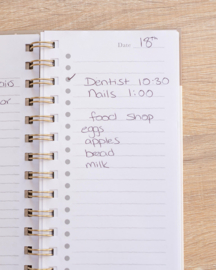 Date 18th
Dentist 10:30
Nails 1:00
food shop
eggs
apples
bread
milk